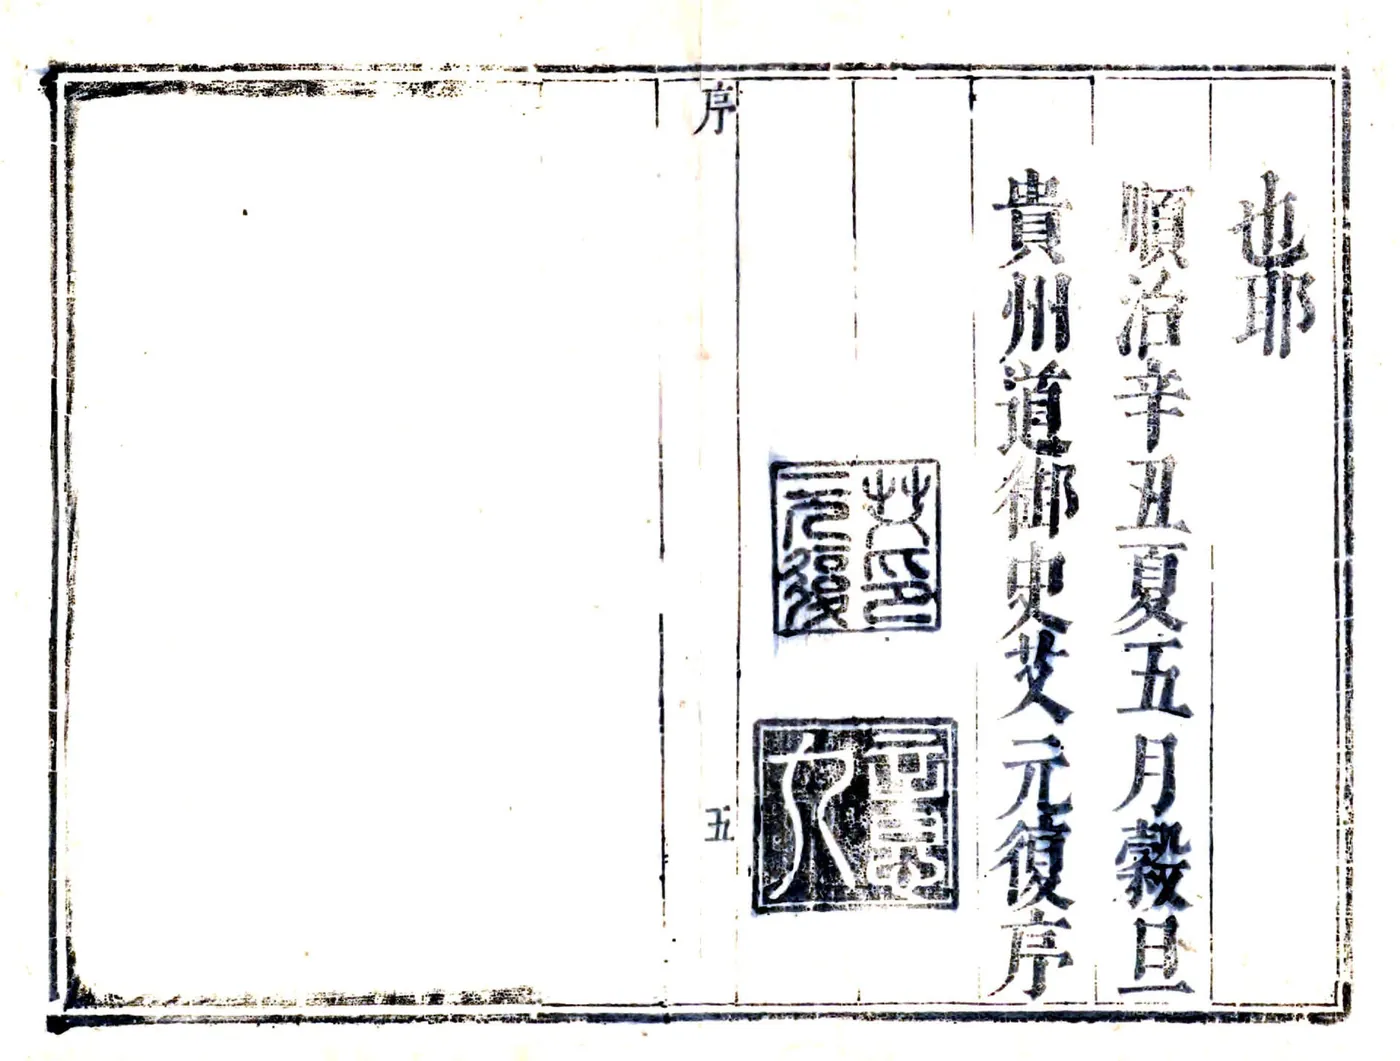 也耶
順治辛丑夏五月穀旦
貴州道御史艾元復序
艾印
元復
序
五